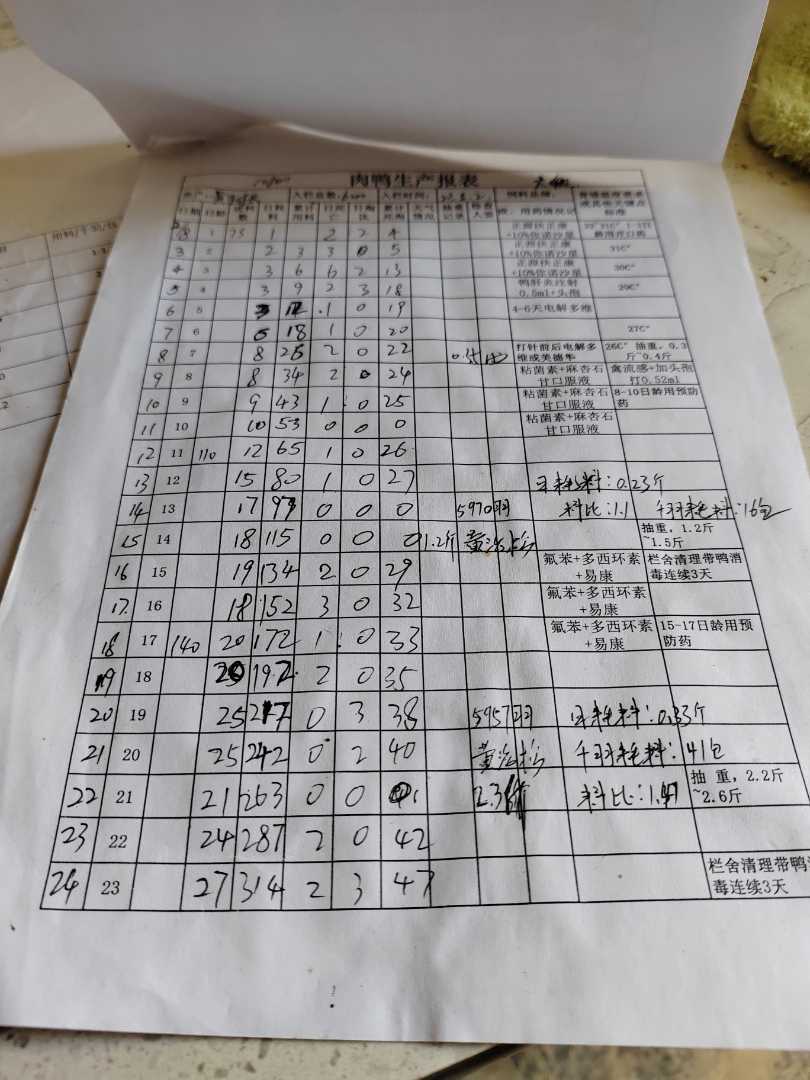 肉鸭生产报表
入栏总数: 入栏时间: 饲料品牌:
日期 日龄 日料 累计用料 日死亡 日淘汰 累计死淘 天气情况 抽重记录 用药情况记
1 75 1 2 2 4 正源扶正康+10%你诺沙星
3 2 2 3 3 0 5 正源扶正康+10%你诺沙星 31C°
4 3 3 6 6 2 13 正源扶正康+10%你诺沙星 30C°
5 4 3 9 2 3 18 鸭肝炎注射0.5ml+头孢 29C°
6 5 3 12 1 0 19 4-6天电解多维
7 6 6 18 1 0 20 27C°
8 7 8 26 2 0 22 打针前后电解多维或美德华 26C° 抽重,0.3斤~0.4斤
9 8 8 34 2 0 24 粘菌素+麻杏石甘口服液 禽流感+加头孢打0.52ml
10 9 9 43 1 0 25 粘菌素+麻杏石甘口服液 8-10日龄用预防药
11 10 10 53 0 0 0 粘菌素+麻杏石甘口服液
12 11 110 12 65 1 0 26
13 12 15 80 1 0 27 日耗料:0.23斤
14 13 17 97 0 0 0 5970羽 料比:1.1 千羽耗料:16包
15 14 18 115 0 0 0 1.2斤 抽重,1.2斤~1.5斤
16 15 19 134 2 0 29 氟苯+多西环素+易康 栏舍清理带鸭消毒连续3天
17 16 18 152 3 0 32 氟苯+多西环素+易康
18 17 140 20 172 1 0 33 氟苯+多西环素+易康 15-17日龄用预防药
19 18 20 192 2 0 35
20 19 25 217 0 3 38 5957羽 日耗料:0.33斤
21 20 25 242 0 2 40 千羽耗料:41包
22 21 21 263 0 0 2.3斤 料比: 抽重,2.2斤~2.6斤
23 22 24 287 2 0 42
24 23 27 314 2 3 47 栏舍清理带鸭消毒连续3天